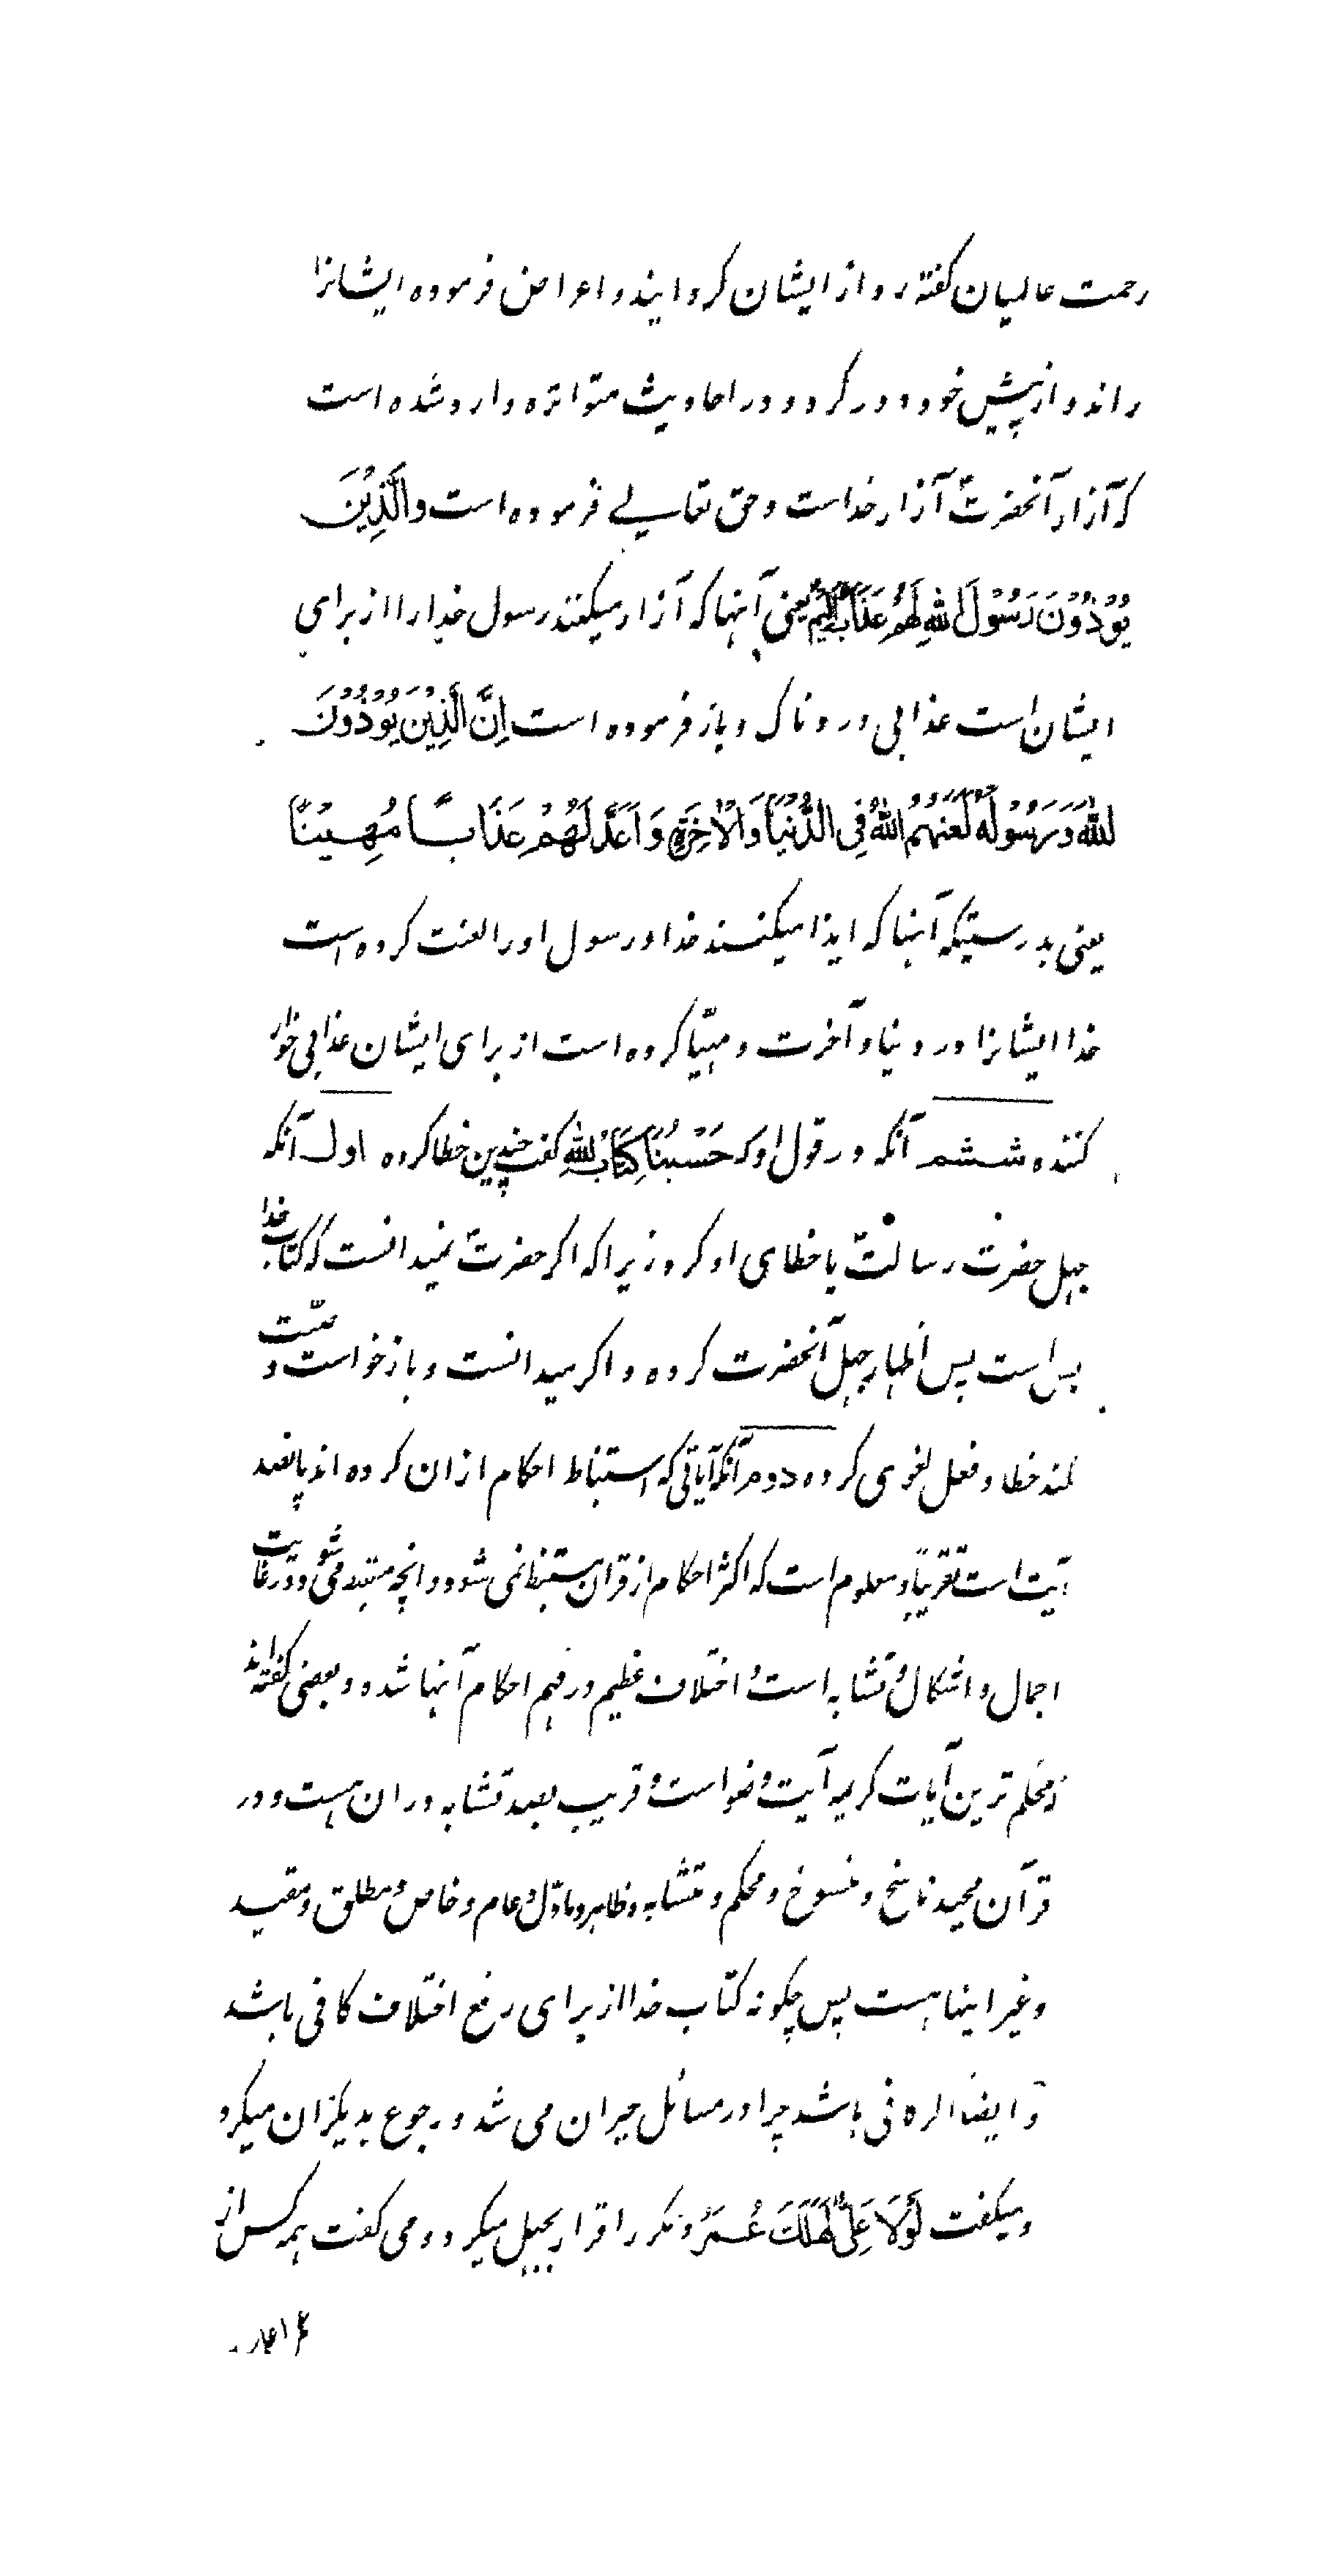 رحمت عالمیان گفته رو از ایشان گردانید و اعراض فرموده ایشانرا
راند و از پیش خود دور کرد و در احادیث متواتره وارد شده است
که آزار آنحضرتؐ آزار خداست و حق تعالے فرموده است وَالَّذِیْنَ
یُوْذُوْنَ رَسُوْلَ اللهِ لَهُمْ عَذَابٌ اَلِیْمٌ یعنی آنها که آزار میکنند رسول خدا را از برای
ایشان است عذابی دردناک و باز فرموده است اِنَّ الَّذِیْنَ یُوْذُوْنَ
اللهَ وَ رَسُوْلَهٗ لَعَنَهُمُ اللهُ فِی الدُّنْیَا وَالْاٰخِرَةِ وَ اَعَدَّ لَهُمْ عَذَابًا مُهِیْنًا
یعنی بدرستیکه آنها که ایذا میکنند خدا و رسول او را لعنت کرده است
خدا ایشانرا در دنیا و آخرت و مهیّا کرده است از برای ایشان عذابی خوار
کننده ششم آنکه در قول او که حَسْبُنَا كِتَابُ اللهِ گفت چندین خطا کرده اول آنکه
جهل حضرت رسالتؐ یا خطای او کرد زیرا که اگر حضرتؐ نمیدانست که کتاب خدا
بس است پس اظهار جهل آنحضرت کرده و اگر میدانست و باز خواست وصیّت
کند خطا و فعل لغوی کرده دوم آنکه آیاتی که استنباط احکام ازان کرده اند پانصد
آیت است تقریباً و معلوم است که اکثر احکام از قران مستنبط نمی شود و انچه مستنبط می شود در غایت
اجمال و اشکال و تشابه است و اختلاف عظیم در فهم احکام آنها شده و بعضی گفته اند
که محکم ترین آیات کریمه آیت وضو است و قریب بصد تشابه در ان هست و در
قرآن مجید ناسخ و منسوخ و محکم و متشابه و ظاهر و ماوّل و عام و خاص و مطلق و مقید
و غیر اینها هست پس چگونه کتاب خدا از برای رفع اختلاف کافی باشد
و ایضاً اگر کافی باشد چرا در مسائل حیران می شد و رجوع بدیگران میکرد
و میگفت لَوْلَا عَلِیٌّ لَهَلَكَ عُمَرُ و مکرر اقرار بجهل میکرد و می گفت همه کس از